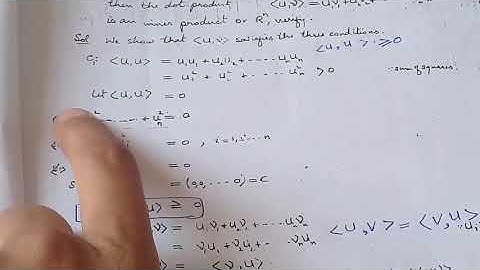 then the dot product <u,v> = u₁v₁ + u₂v₂ +
is an inner product or Rⁿ, verify.
Sol We show that <u,v> satisfies the three conditions.
<u,u> ≥ 0
C₁ <u,u> = u₁u₁ + u₂u₂ + ----- uₙuₙ
= u₁² + u₂² + ---- uₙ² > 0 sum of squares
let <u,u> = 0
---- + uₙ² = 0
= 0 , i = 1, 2 ··· n
= 0
= (0 0, ··· 0) = C
≥ 0
= u₁v₁ + u₂v₂ + ---- uₙvₙ <u,v> = <v,u>
= v₁u₁ + v₂u₂ + --- vₙuₙ
= <v,u>